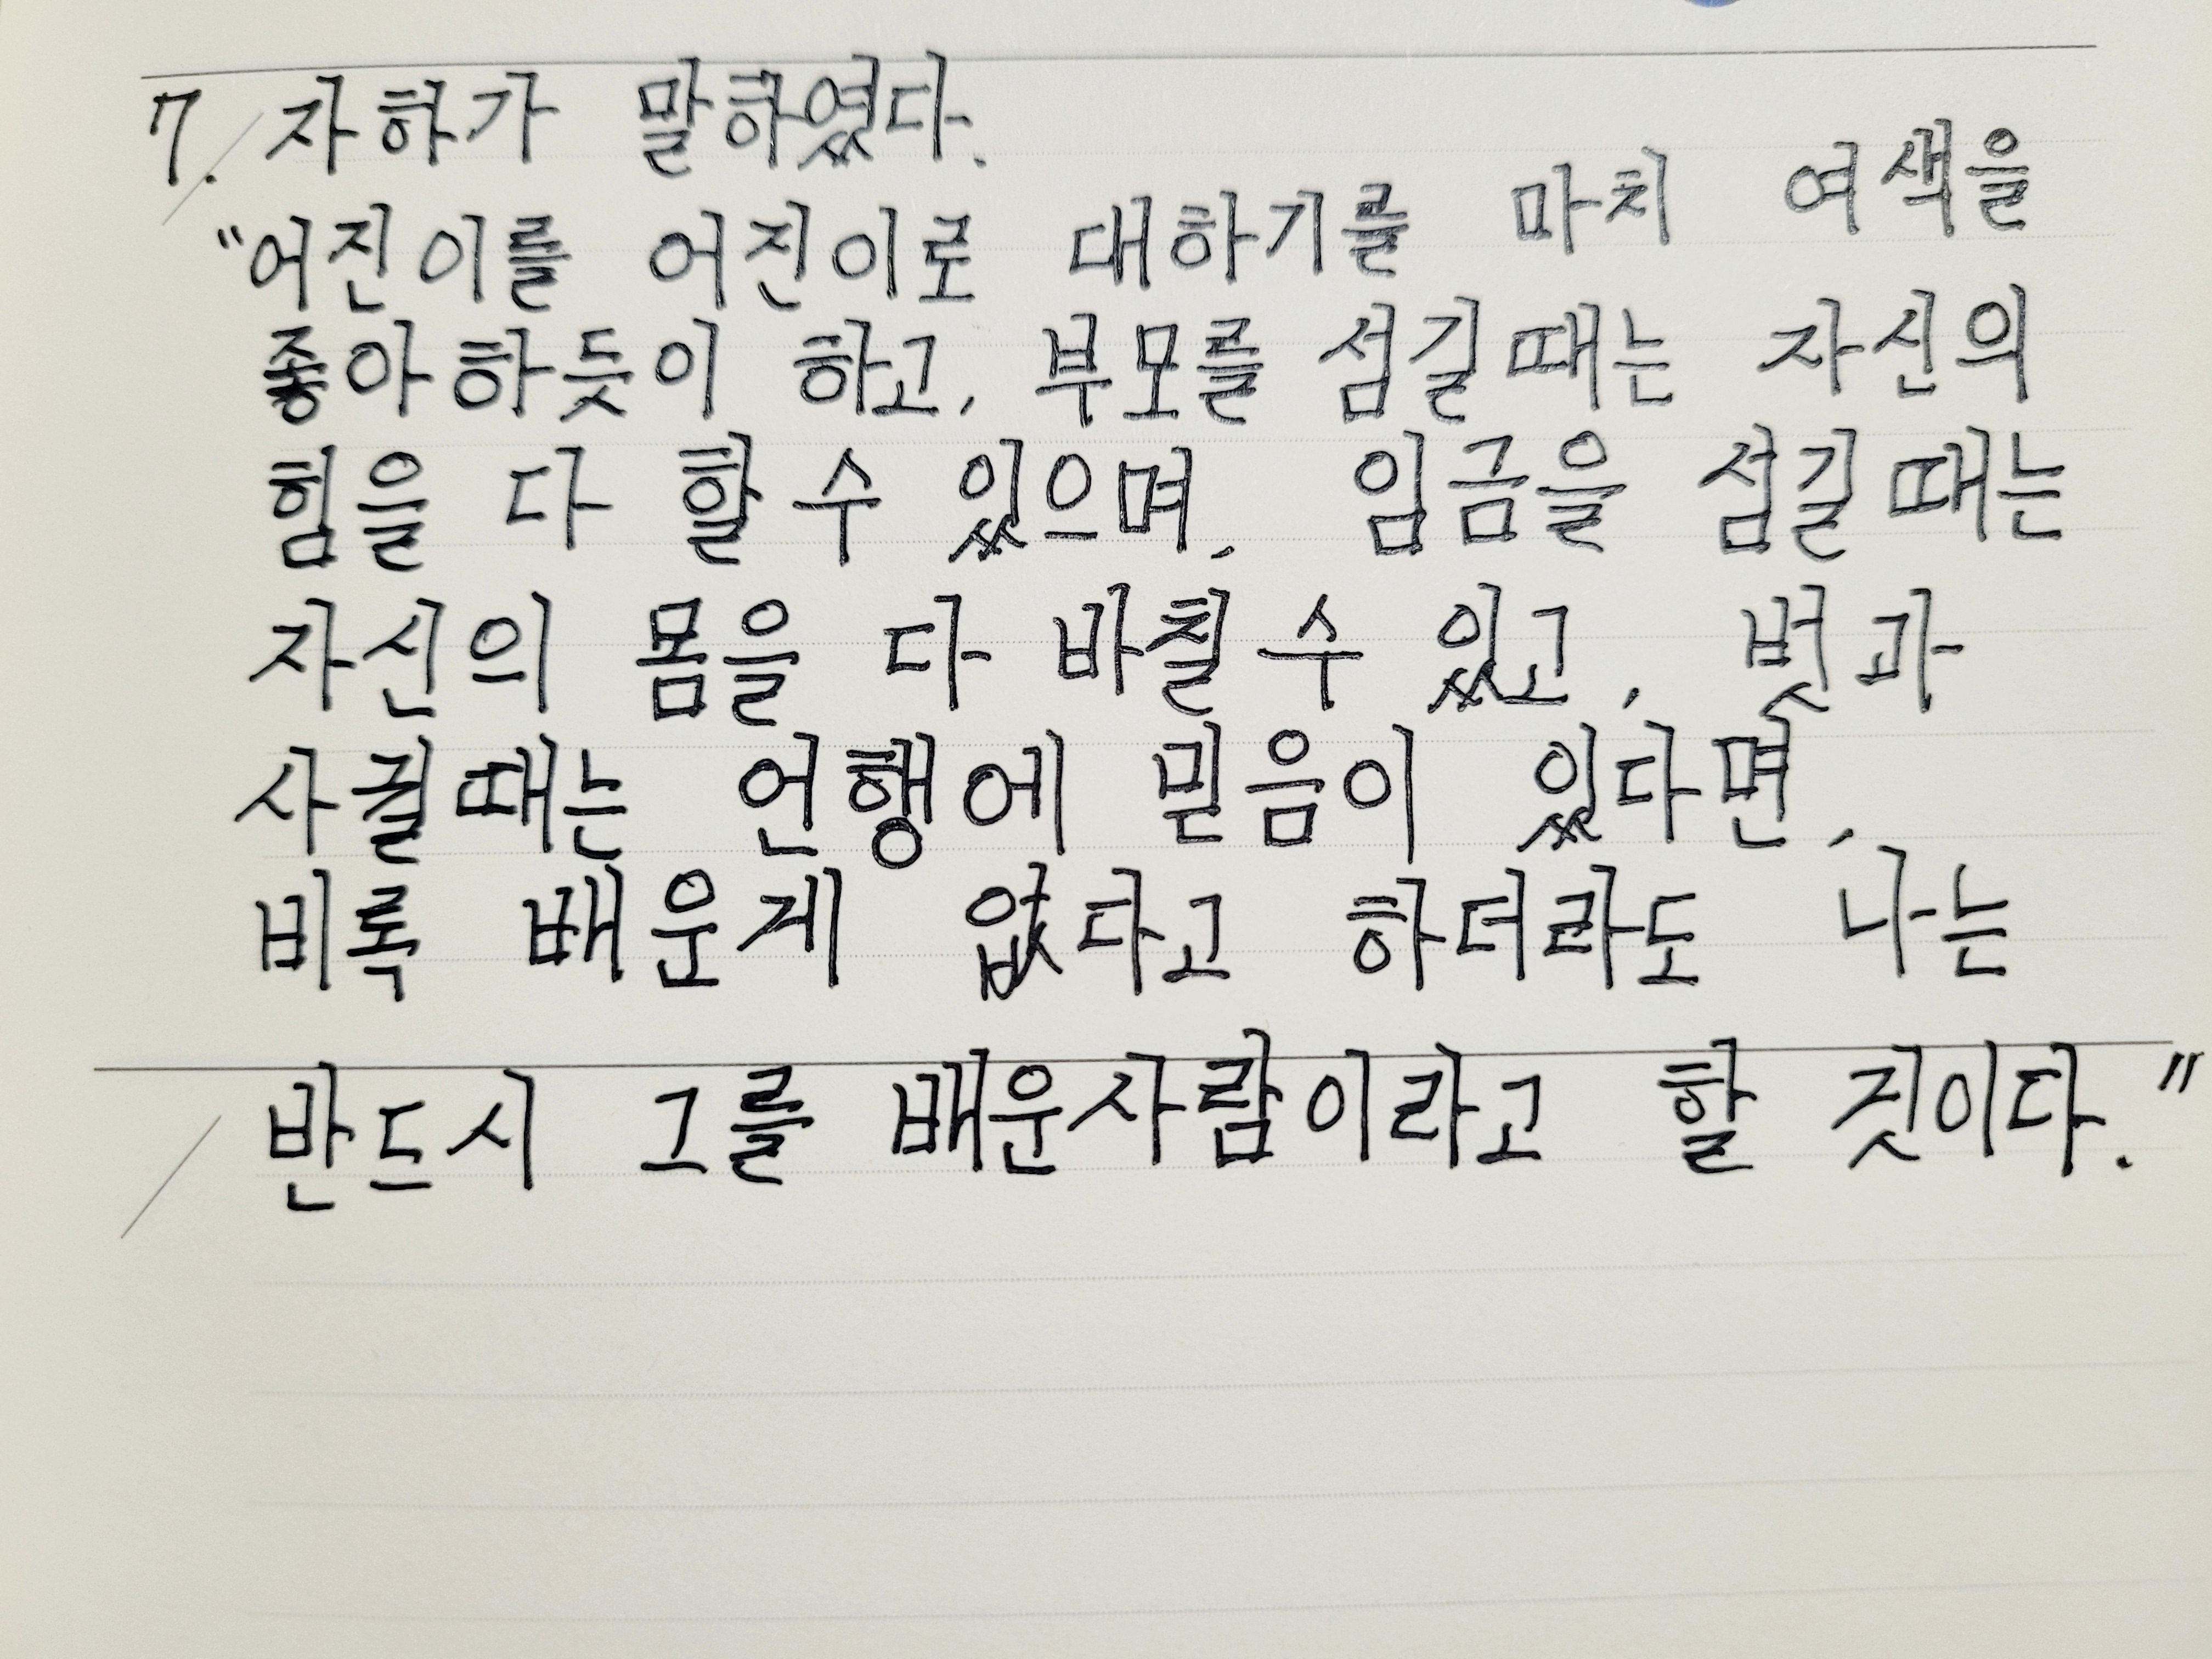 7. 자하가 말하였다.
"어진이를 어진이로 대하기를 마치 여색을
좋아하듯이 하고, 부모를 섬길때는 자신의
힘을 다 할수 있으며, 임금을 섬길때는
자신의 몸을 다 바칠수 있고, 벗과
사귈때는 언행에 믿음이 있다면,
비록 배운게 없다고 하더라도 나는
반드시 그를 배운사람이라고 할 것이다."